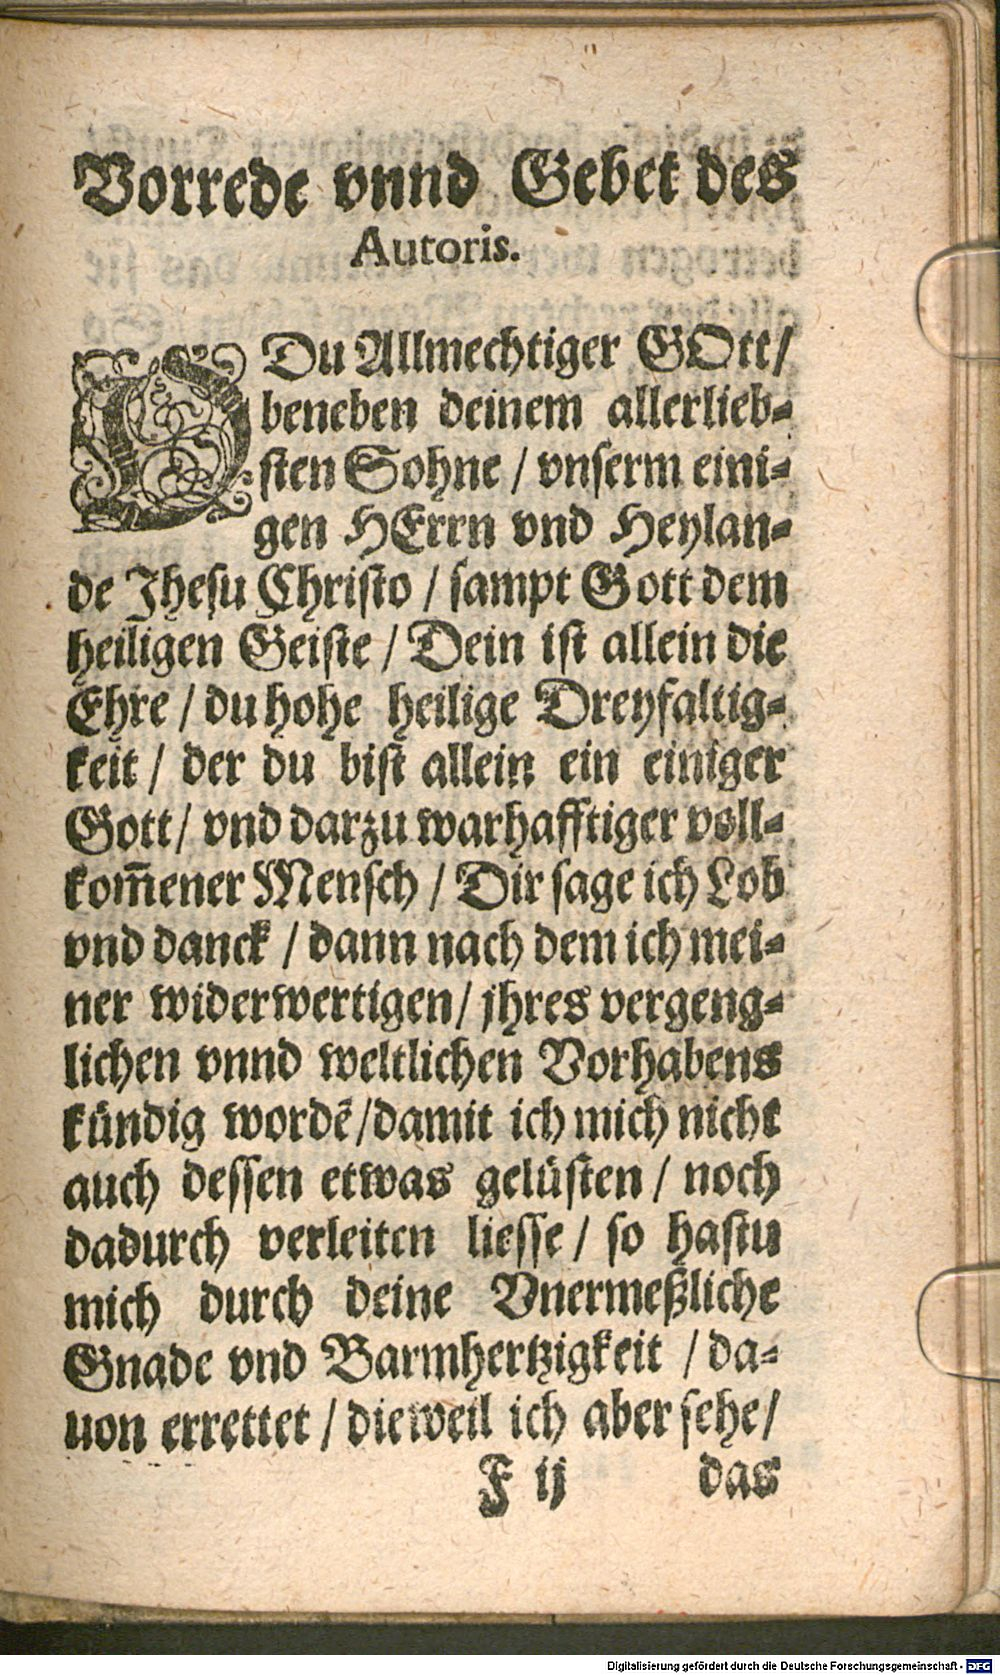 Vorrede vnnd Gebet des
Autoris.
O Du Allmechtiger GOtt/
beneben deinem allerlieb⸗
sten Sohne / vnserm eini⸗
gen HErrn vnd Heylan⸗
de Jhesu Christo / sampt Gott dem
heiligen Geiste / Dein ist allein die
Ehre / du hohe heilige Dreyfaltig⸗
keit / der du bist allein ein einiger
Gott/ vnd darzu warhafftiger voll⸗
kom̃ener Mensch / Dir sage ich Lob
vnd danck / dann nach dem ich mei⸗
ner widerwertigen/ jhres vergeng⸗
lichen vnnd weltlichen Vorhabens
kündig wordẽ/damit ich mich nicht
auch dessen etwas gelüsten / noch
dadurch verleiten liesse / so hastu
mich durch deine Vnermeßliche
Gnade vnd Barmhertzigkeit / da⸗
uon errettet / dieweil ich aber sehe/
F ij das
Digitalisierung gefördert durch die Deutsche Forschungsgemeinschaft - DFG